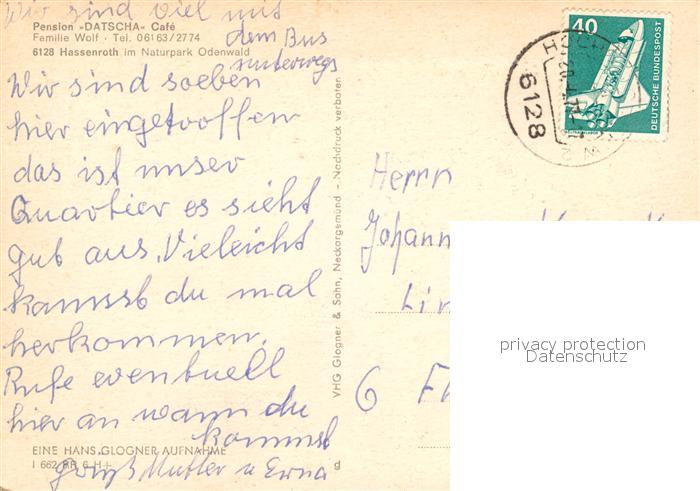 Wir sind viel mit
dem Bus
unterwegs
Pension »DATSCHA« Café
Familie Wolf · Tel. 06163/2774
6128 Hassenroth im Naturpark Odenwald
Wir sind soeben
hier eingetroffen
das ist unser
Quartier es sieht
gut aus. Vieleicht
kannst du mal
herkommen.
Rufe eventuell
hier an wann du
kommst
gruß Mutter u Erna
EINE HANS GLOGNER AUFNAHME
VHG Glogner & Sohn, Neckargemünd - Nachdruck verboten
40
DEUTSCHE BUNDESPOST
6128
Herrn
Johann
Lin
6 F
privacy protection
Datenschutz